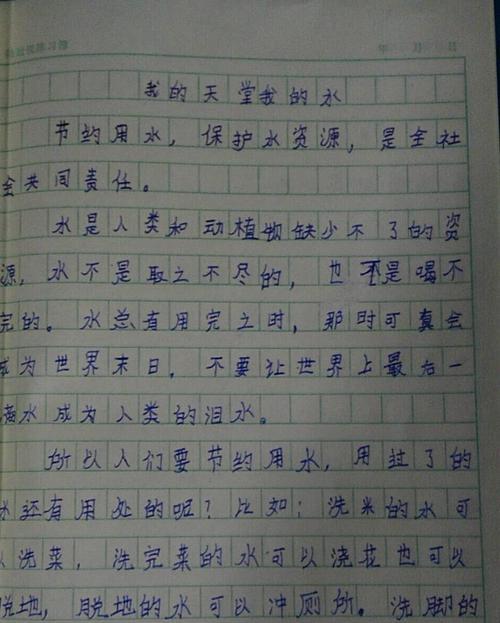 年 月 日
我的天堂我的水
节约用水，保护水资源，是全社
会共同责任。
水是人类和动植物缺少不了的资
源，水不是取之不尽的，也不是喝不
完的。水总有用完之时，那时可真会
成为世界末日，不要让世界上最后一
滴水成为人类的泪水。
所以人们要节约用水，用过了的
水还有用处的呢？比如：洗米的水可
以洗菜，洗完菜的水可以浇花也可以
脱地，脱地的水可以冲厕所。洗脚的